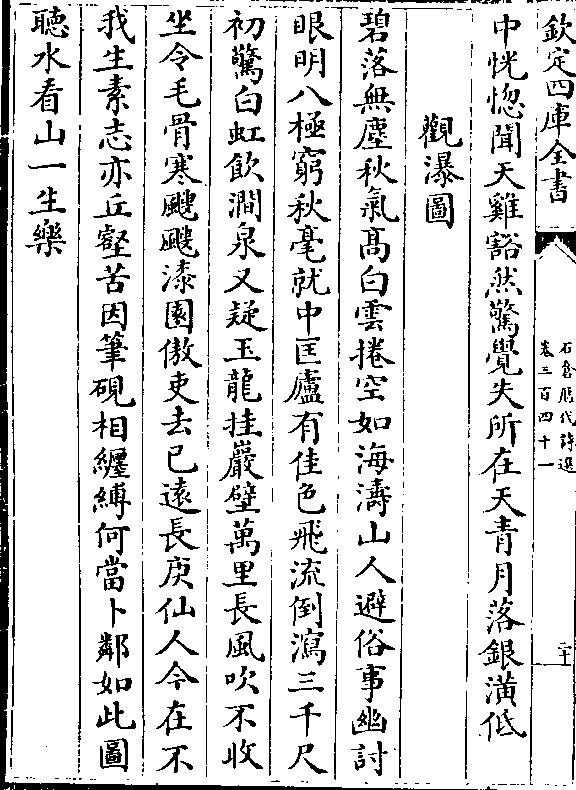 欽定四庫全書
石倉歷代詩選
卷三百四十一
中恍惚聞天雞豁然驚覺失所在天青月落銀潢低
觀瀑圖
碧落無塵秋氣髙白雲捲空如海濤山人避俗事幽討
眼明八極窮秋毫就中匡廬有佳色飛流倒瀉三千尺
初驚白虹飲澗泉又疑玉龍挂巖壁萬里長風吹不收
坐令毛骨寒颼颼漆園傲吏去已遠長庚仙人今在不
我生素志亦丘壑苦因筆硯相纏縛何當卜鄰如此圖
聽水看山一生樂